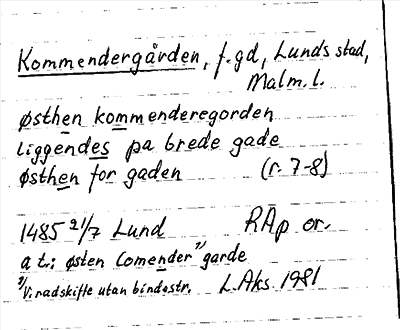 Kommendergården, f.gd, Lunds stad,
Malm. l.
østhen kommenderegorden
liggendes pa brede gade
østhen for gaden (r. 7-8)
1485 21/7 Lund RAp or.
a t.: østen Comender 1) garde
1) V: radskifte utan bindestr. L. Aks. 1981